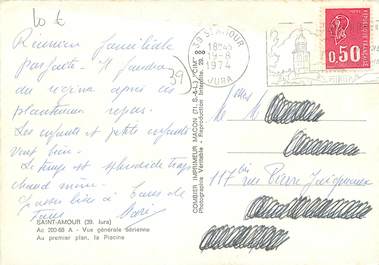 10 €
Réunion familiale
parfaite. Il faudra
du régime après ce
plantureux repas.
Les enfants et petits enfants
vont bien.
Le temps est splendide trop
chaud même.
Bonnes bises à tous de
tous
39
39 ST-AMOUR
18H45
19-8
1974
JURA
REPUBLIQUE FRANÇAISE
0,50
POSTES
M M
117 bis rue Pierre
COMBIER IMPRIMEUR MACON (71, S.-&-L.) "CIM"
Photographie Véritable - Reproduction Interdite
SAINT-AMOUR (39. Jura)
Ac 200-68 A - Vue générale aérienne
Au premier plan, la Piscine